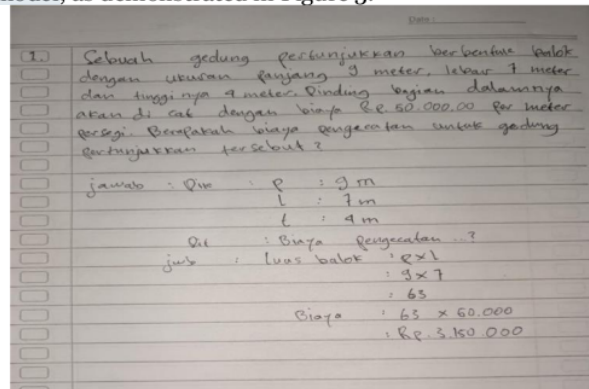 model, as demonstrated in Figure 3.
Date :
1. Sebuah gedung pertunjukkan berbentuk balok
dengan ukuran panjang 9 meter, lebar 7 meter
dan tinggi nya 4 meter. Dinding bagian dalamnya
akan di cat dengan biaya Rp. 50.000.00 per meter
persegi. Berapakah biaya pengecatan untuk gedung
pertunjukkan tersebut ?
jawab : Dik : P : 9 m
l : 7 m
t : 4 m
Dit : Biaya pengecatan ..?
jwb : luas balok : p x l
: 9 x 7
: 63
Biaya : 63 x 50.000
: Rp. 3.150.000